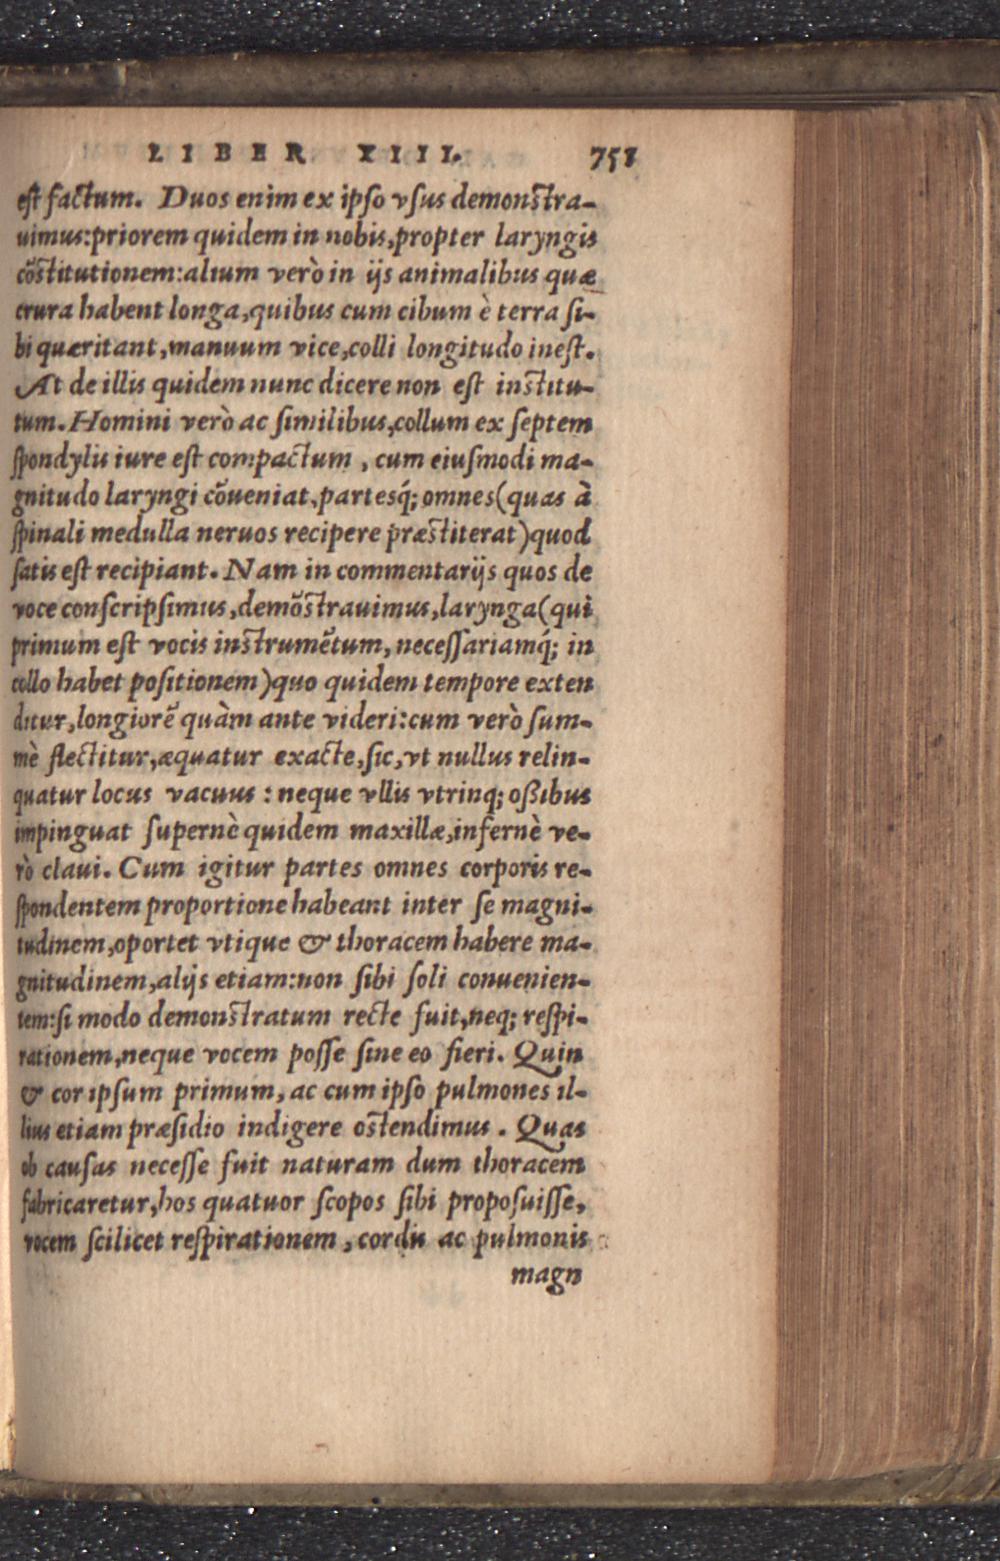 LIBER XIIII. 751
est factum. Duos enim ex ipso vsus demonstra-
uimus:priorem quidem in nobis,propter laryngis
cõstitutionem:alium verò in ijs animalibus quæ
crura habent longa,quibus cum cibum è terra si-
bi quæritant,manuum vice,colli longitudo inest.
At de illis quidem nunc dicere non est institu-
tum. Homini verò ac similibus,collum ex septem
spondylis iure est compactum , cum eiusmodi ma-
gnitudo laryngi cõueniat,partesq́; omnes(quas à
spinali medulla neruos recipere præstiterat)quod
satis est recipiant. Nam in commentarijs quos de
voce conscripsimus,demõstrauimus,larynga(qui
primum est vocis instrumẽtum, necessariamq́; in
collo habet positionem)quo quidem tempore exten
ditur,longiorẽ quàm ante videri:cum verò sum-
mè flectitur,æquatur exacte,sic,vt nullus relin-
quatur locus vacuus : neque vllis vtrinq; oßibus
impinguat supernè quidem maxillæ,infernè ve-
rò claui. Cum igitur partes omnes corporis re-
spondentem proportione habeant inter se magni-
tudinem,oportet vtique & thoracem habere ma-
gnitudinem,alijs etiam:non sibi soli conuenien-
tem:si modo demonstratum recte fuit,neq; respi-
rationem,neque vocem posse sine eo fieri. Quin
& cor ipsum primum, ac cum ipso pulmones il-
lius etiam præsidio indigere ostendimus . Quas
ob causas necesse fuit naturam dum thoracem
fabricaretur,hos quatuor scopos sibi proposuisse,
vocem scilicet respirationem , cordis ac pulmonis
magn